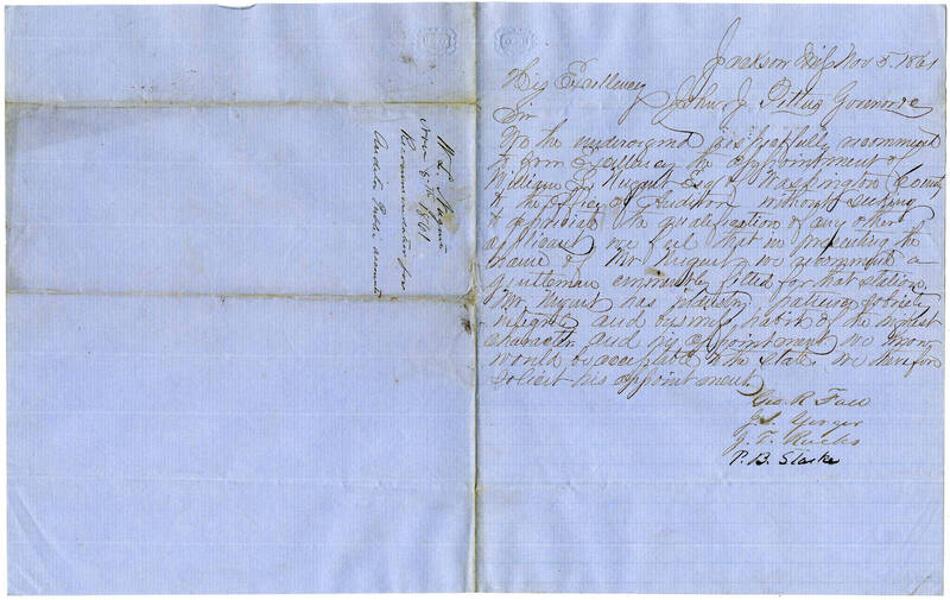 W. L. Nugent
Nov 6th 1861
Recommendation for
Auditor Public accounts
Jackson Miſs Nov 5. 1861
His Excellency
John J. Pettus Governor
Sir
We the undersigned respectfully recommend
to your Excellency the appointment of
William L Nugent Esq of Washington County
to the Office of Auditor. without seeking
to depreciate the qualification of any other
applicant we feel that in presenting the
name of Mr Nugent we recommend a
gentleman eminently fitted for that station.
Mr Nugent has industry, patience, sobriety
integrity and business habits of the highest
character and his appointment we know
would be acceptable to the State. we therefore
solicit his appointment.
Geo. R. Fall
J. S. Yerger
J. T. Rucks
P. B. Starke